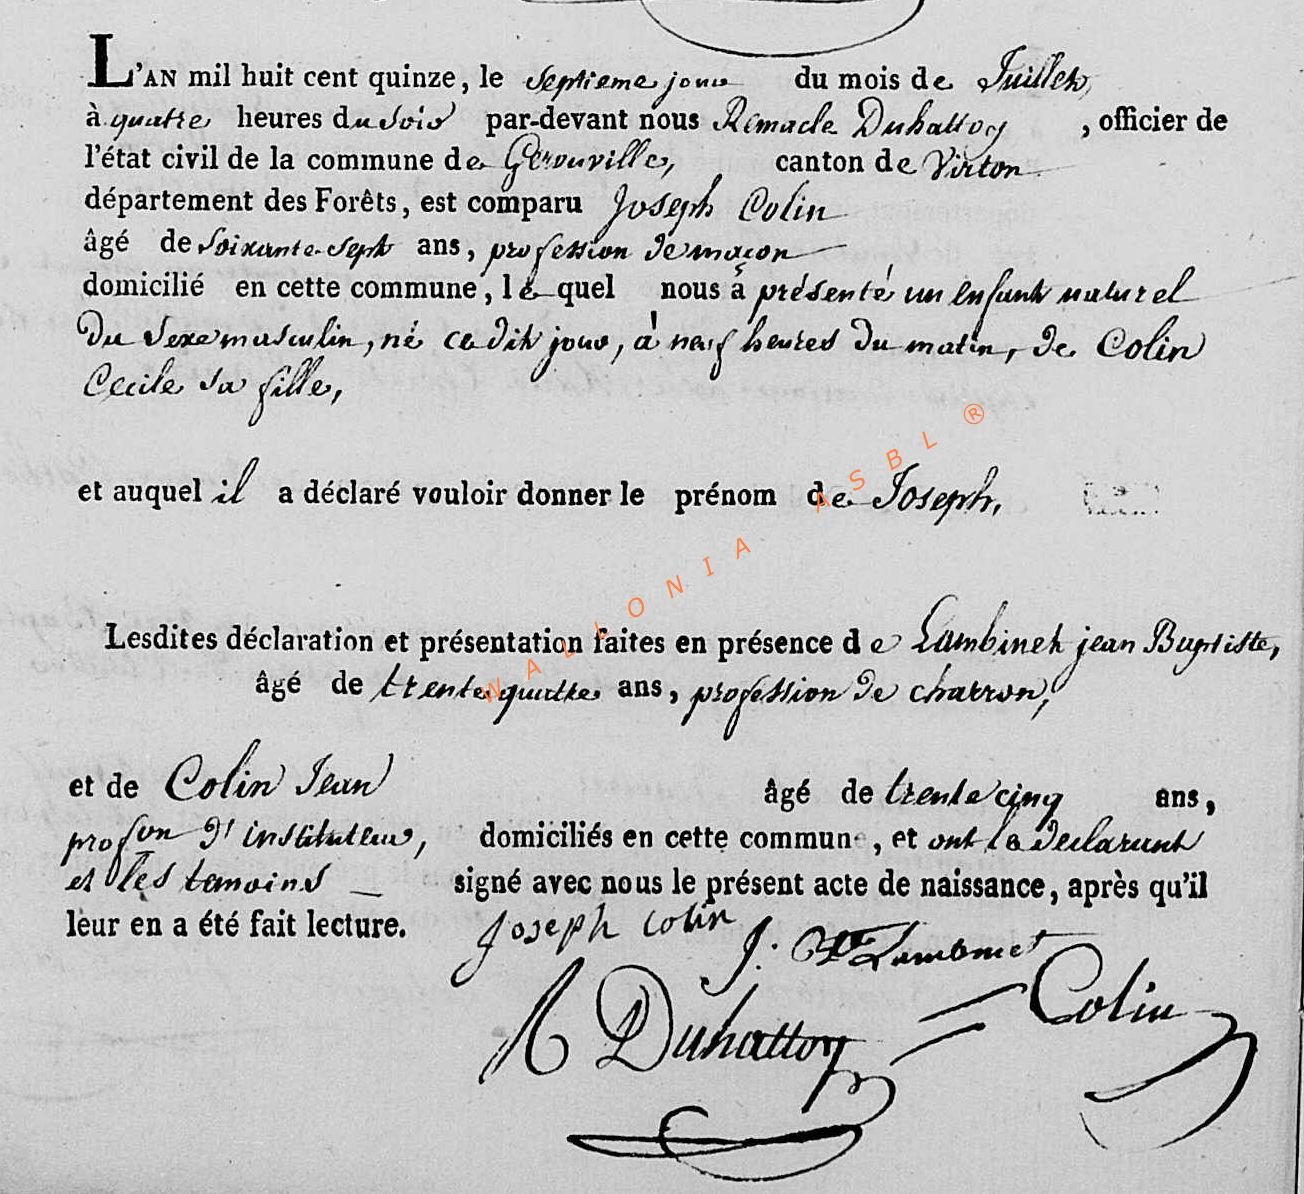 L'AN mil huit cent quinze, le septieme jour du mois de Juillet,
à quatre heures du soir par-devant nous Remacle Duhattoy, officier de
l'état civil de la commune de Gerouville, canton de Virton
département des Forêts, est comparu Joseph Colin
âgé de soixante-sept ans, profession de maçon
domicilié en cette commune, le quel nous a présenté un enfant naturel
du sexe masculin, né ce dit jour, à neuf heures du matin, de Colin
Cecile sa fille,
et auquel il a déclaré vouloir donner le prénom de Joseph.
WALLONIA ASBL ®
Lesdites déclaration et présentation faites en présence de Lambinet jean Baptiste,
âgé de trente quatre ans, profession de charron,
et de Colin Jean âgé de trente cinq ans,
profson d'instituteur, domiciliés en cette commune, et ont le declarant
et les temoins signé avec nous le présent acte de naissance, après qu'il
leur en a été fait lecture.
Joseph Colin
J. Bte Lambinet
R Duhattoy
Colin